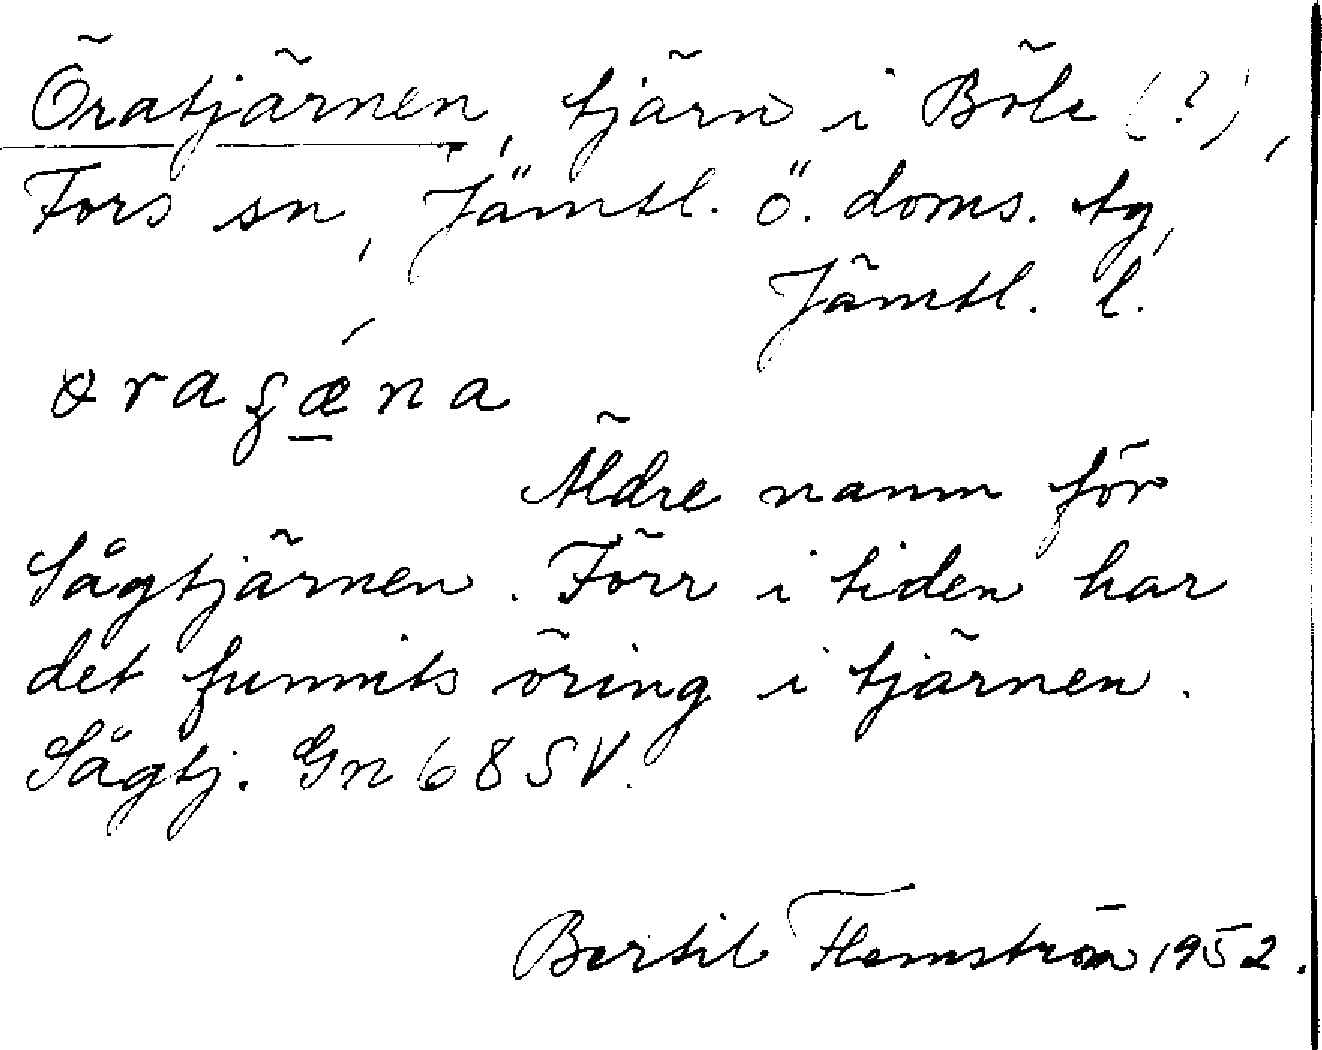 Öratjärnen, tjärn i Böle (?),
Fors sn, Jämtl. ö. doms. tg,
Jämtl. l.
Äldre namn för
Sågtjärnen. Förr i tiden har
det funnits öring i tjärnen.
Sågtj. Gn 68 SV.
Bertil Flemström 1952.